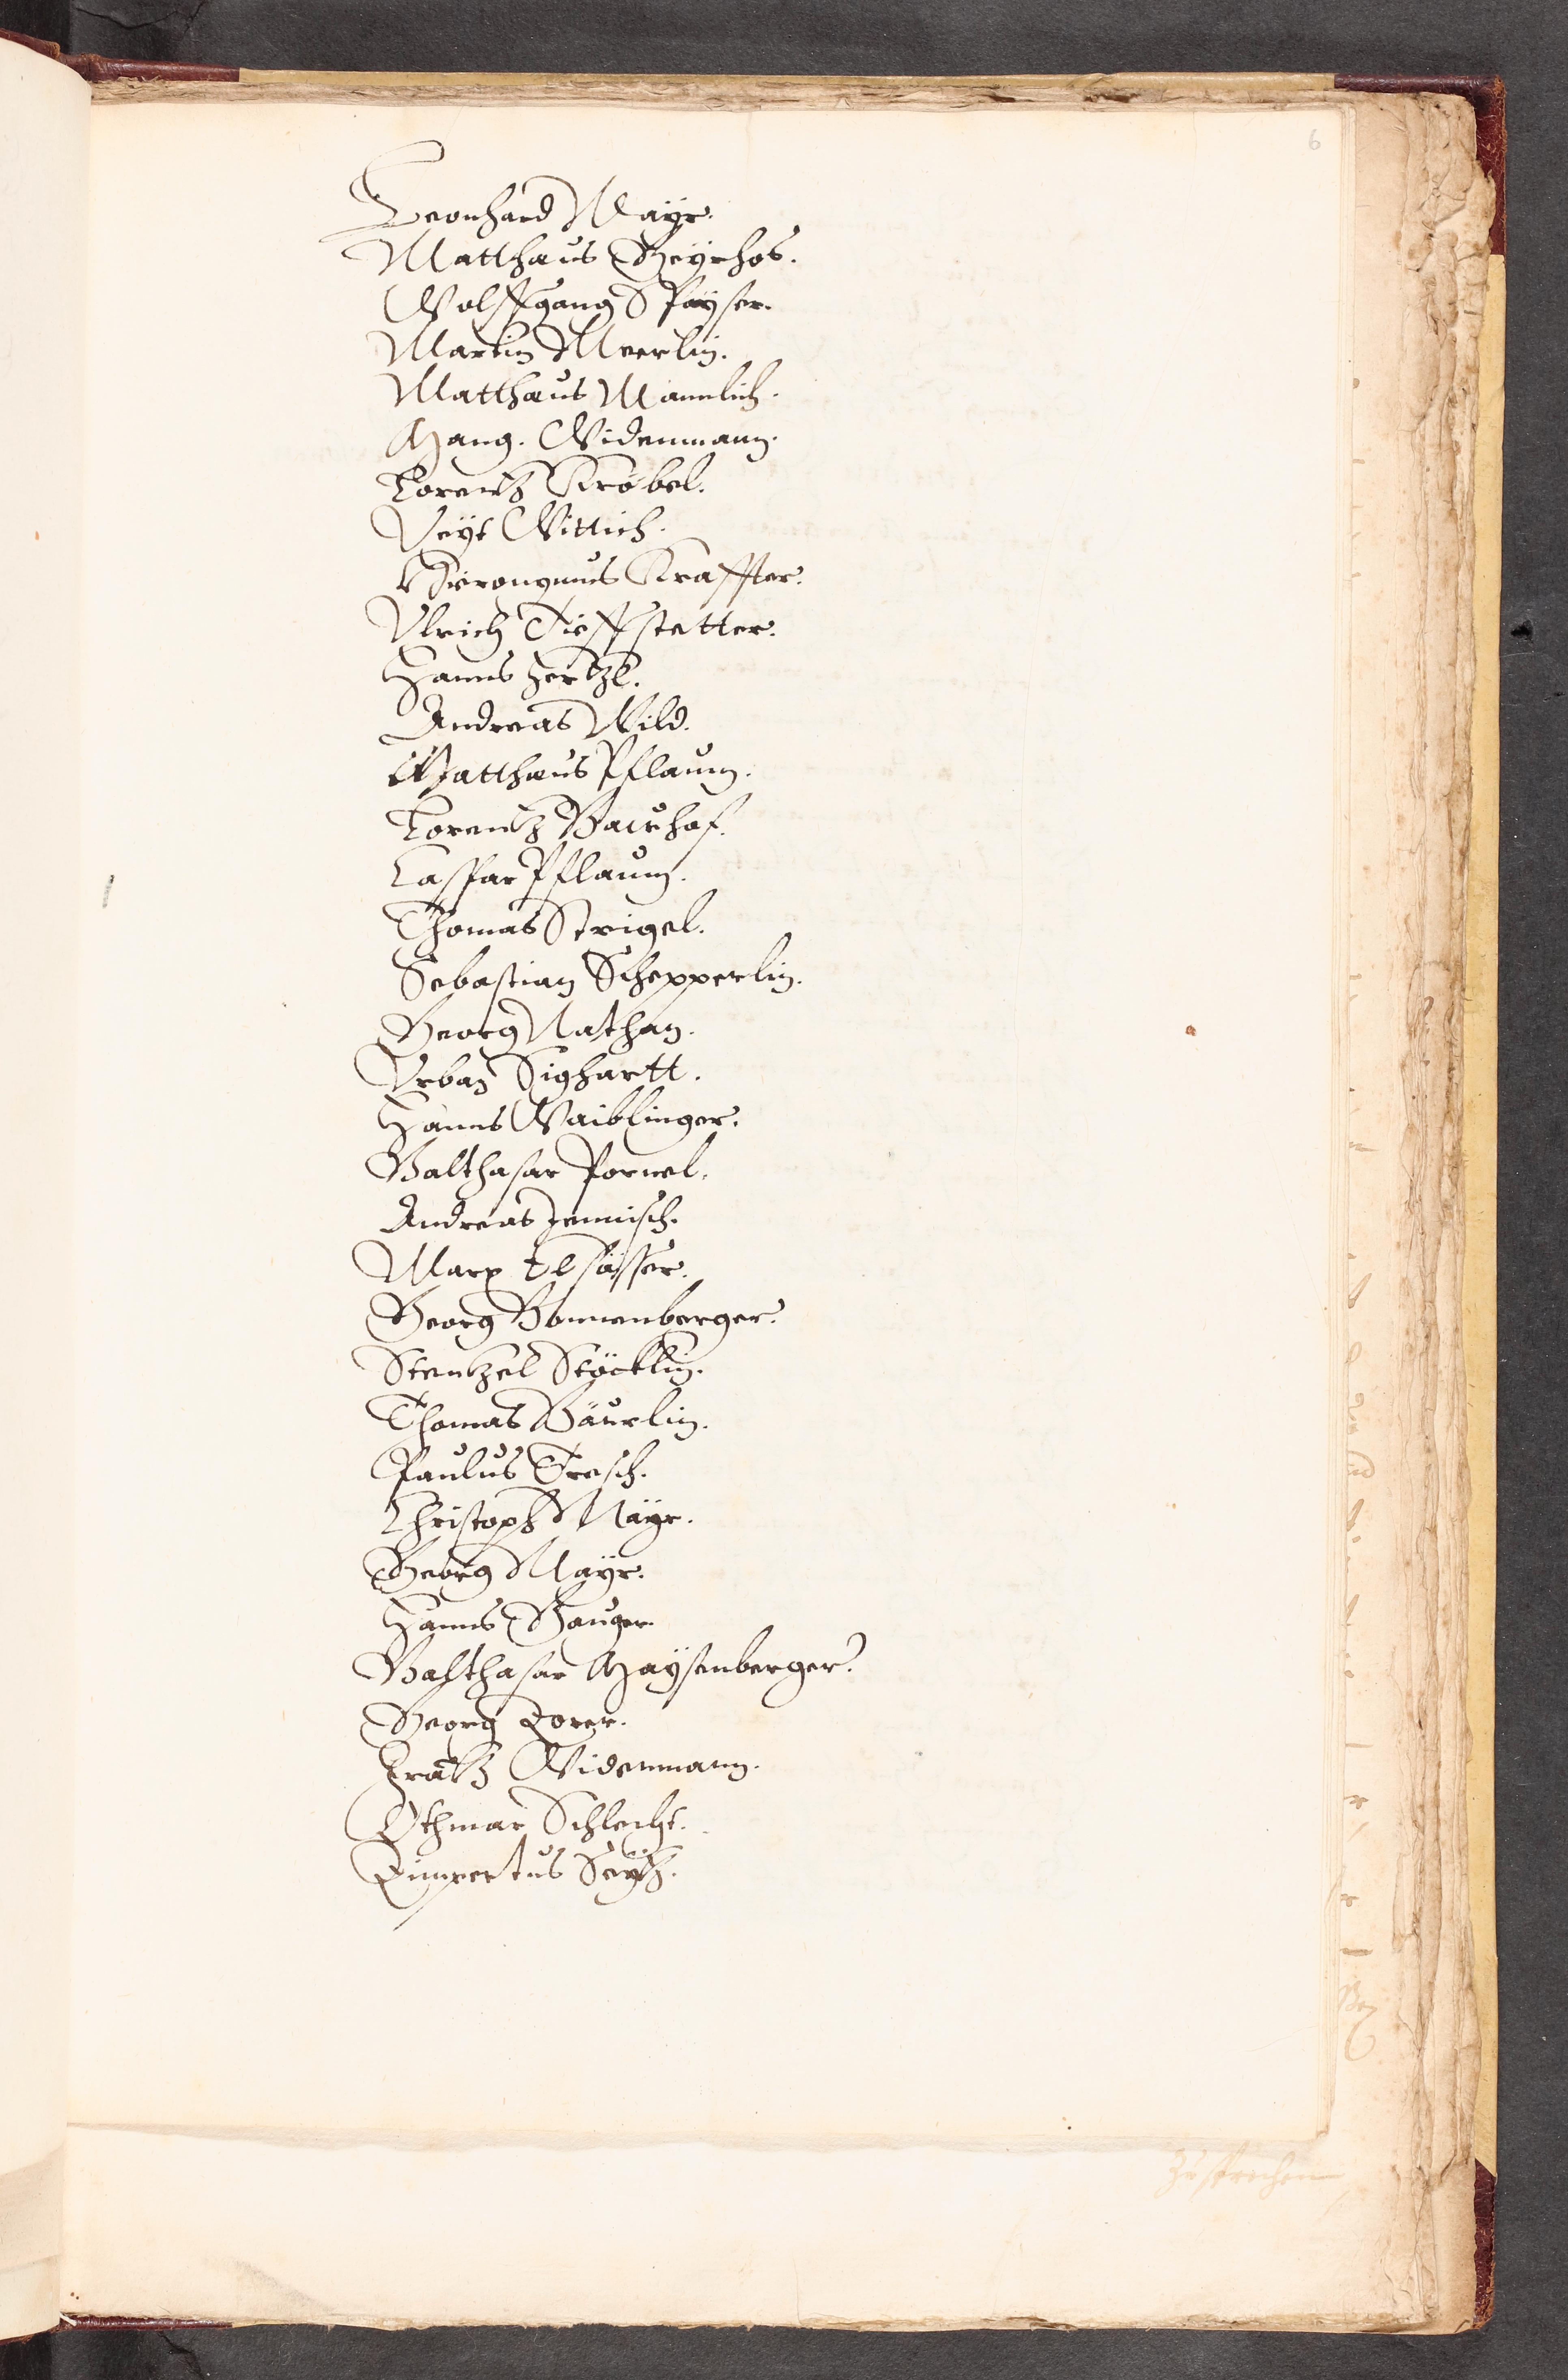 6
Leonhard Mayr.
Matthaus Geyrhos.
Wolffgang Spayser.
Martin Meerlin.
Matthaus Manlich.
Mang. Widenmann.
Lorentz Kröbel.
Veyt Wittich.
Hieronymus Kraffter.
Vlrich Tieffstetter.
Hanns Hertzl.
Andreas Wild.
Matthaus Pflaum.
Lorentz Baurhof.
Caspar Pflaum.
Thomas Strigel.
Sebastian Schepperlin.
Georg Nathan.
Vrban Sighartt.
Hanns Waiblinger.
Balthasar Pornel.
Andreas Jemisch.
Marx Elsässer.
Georg Bonnenberger.
Stentzel Stöcklin.
Thomas Bäurlin.
Paulus Tresch.
Christoph Mayr.
Georg Mayr.
Hanns Gauger.
Balthasar Maysenberger.
Georg Rorer.
Frantz Widenmann.
Othmar Schlecht.
Rimpertus Seytz.
zusprechen